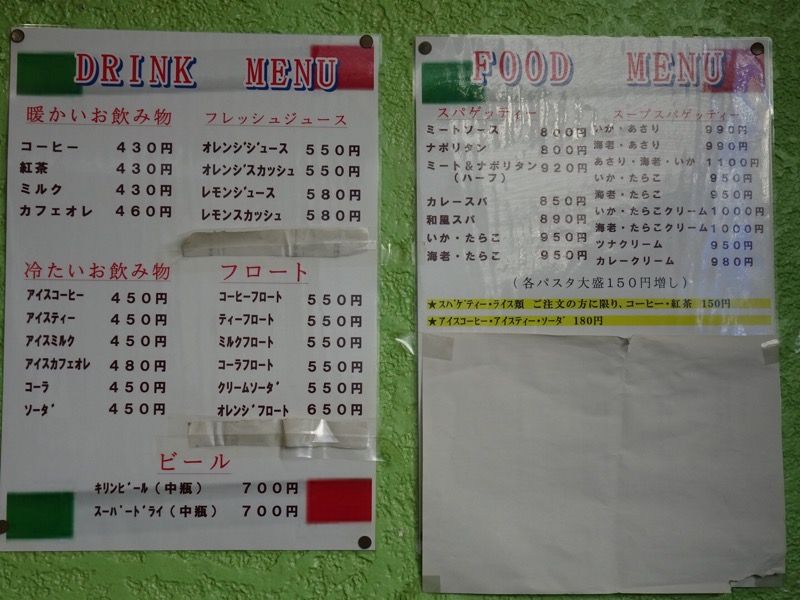 DRINK MENU
暖かいお飲み物
コーヒー 430円
紅茶 430円
ミルク 430円
カフェオレ 460円
フレッシュジュース
オレンジジュース 550円
オレンジスカッシュ 550円
レモンジュース 580円
レモンスカッシュ 580円
冷たいお飲み物
アイスコーヒー 450円
アイスティー 450円
アイスミルク 450円
アイスカフェオレ 480円
コーラ 450円
ソーダ 450円
フロート
コーヒーフロート 550円
ティーフロート 550円
ミルクフロート 550円
コーラフロート 550円
クリームソーダ 550円
オレンジフロート 650円
ビール
キリンビール(中瓶) 700円
スーパードライ(中瓶) 700円
FOOD MENU
スパゲッティー
ミートソース 800円
ナポリタン 800円
ミート&ナポリタン 920円
(ハーフ)
カレースパ 850円
和風スパ 890円
いか・たらこ 950円
海老・たらこ 950円
スープスパゲッティー
いか・あさり 990円
海老・あさり 990円
あさり・海老・いか 1100円
いか・たらこ 950円
海老・たらこ 950円
いか・たらこクリーム 1000円
海老・たらこクリーム 1000円
ツナクリーム 950円
カレークリーム 980円
(各パスタ大盛150円増し)
★スパゲティー・ライス類 ご注文の方に限り、コーヒー・紅茶 150円
★アイスコーヒー・アイスティー・ソーダ 180円